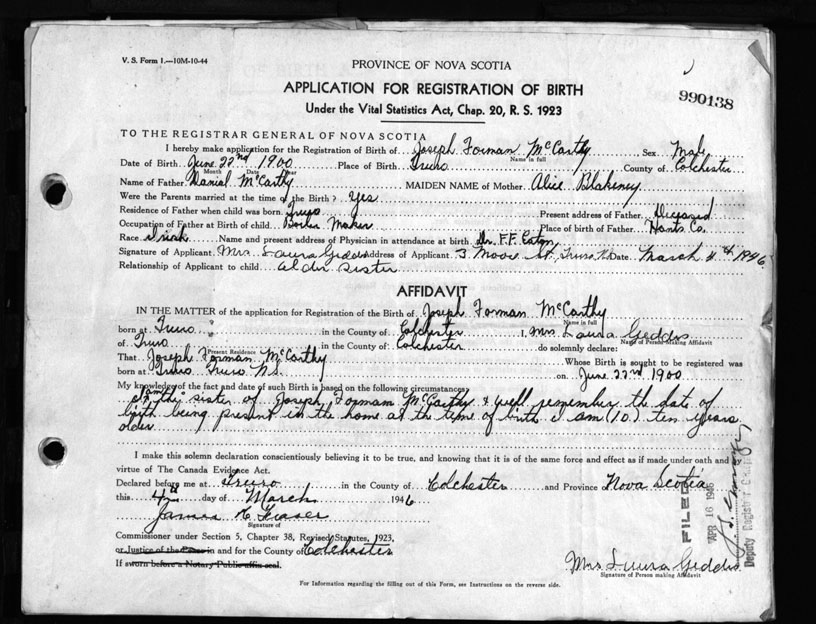 V. S. Form 1.—10M-10-44
PROVINCE OF NOVA SCOTIA
APPLICATION FOR REGISTRATION OF BIRTH
990138
Under the Vital Statistics Act, Chap. 20, R. S. 1923
TO THE REGISTRAR GENERAL OF NOVA SCOTIA
I hereby make application for the Registration of Birth of Joseph Forman McCarthy Sex Male
Name in full
Date of Birth June 22nd 1900 Place of Birth Truro County of Colchester
Month Date Year
Name of Father Danial McCarthy MAIDEN NAME of Mother Alice Blakeney
Were the Parents married at the time of the Birth? Yes
Residence of Father when child was born Truro Present address of Father Deceased
Occupation of Father at Birth of child Boiler Maker Place of birth of Father Hants Co.
Race Irish Name and present address of Physician in attendance at birth Dr. F.F. Eaton
Signature of Applicant Mrs Laura Geddis Address of Applicant 3 Moore St. Truro N.S. Date March 4th 1946
Relationship of Applicant to child alder sister
AFFIDAVIT
IN THE MATTER of the application for Registration of the Birth of Joseph Forman McCarthy
Name in full
born at Truro in the County of Colchester I, Mrs Laura Geddis
Name of Person Making Affidavit
of Truro in the County of Colchester do solemnly declare:
Present Residence
That Joseph Forman McCarthy Whose Birth is sought to be registered was
born at Truro Truro N.S. on June 22nd 1900
My knowledge of the fact and date of such Birth is based on the following circumstances
I am the sister of Joseph Forman McCarthy & well remember the date of
birth being present in the home at the time of birth I am (10) ten years
older
I make this solemn declaration conscientiously believing it to be true, and knowing that it is of the same force and effect as if made under oath and by
virtue of The Canada Evidence Act.
Declared before me at Truro in the County of Colchester and Province Nova Scotia
this 4th day of March 1946
James Fraser
Signature of
Commissioner under Section 5, Chapter 38, Revised Statutes, 1923,
or Justice of the Peace in and for the County of Colchester
If sworn before a Notary Public affix seal.
FILED
APR 16 1946
Deputy Registrar
Mrs Laura Geddis
Signature of Person making Affidavit
For Information regarding the filling out of this Form, see Instructions on the reverse side.